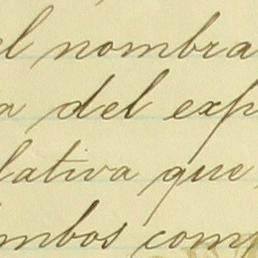 el nombra
a del exp
lativa que
mbos com